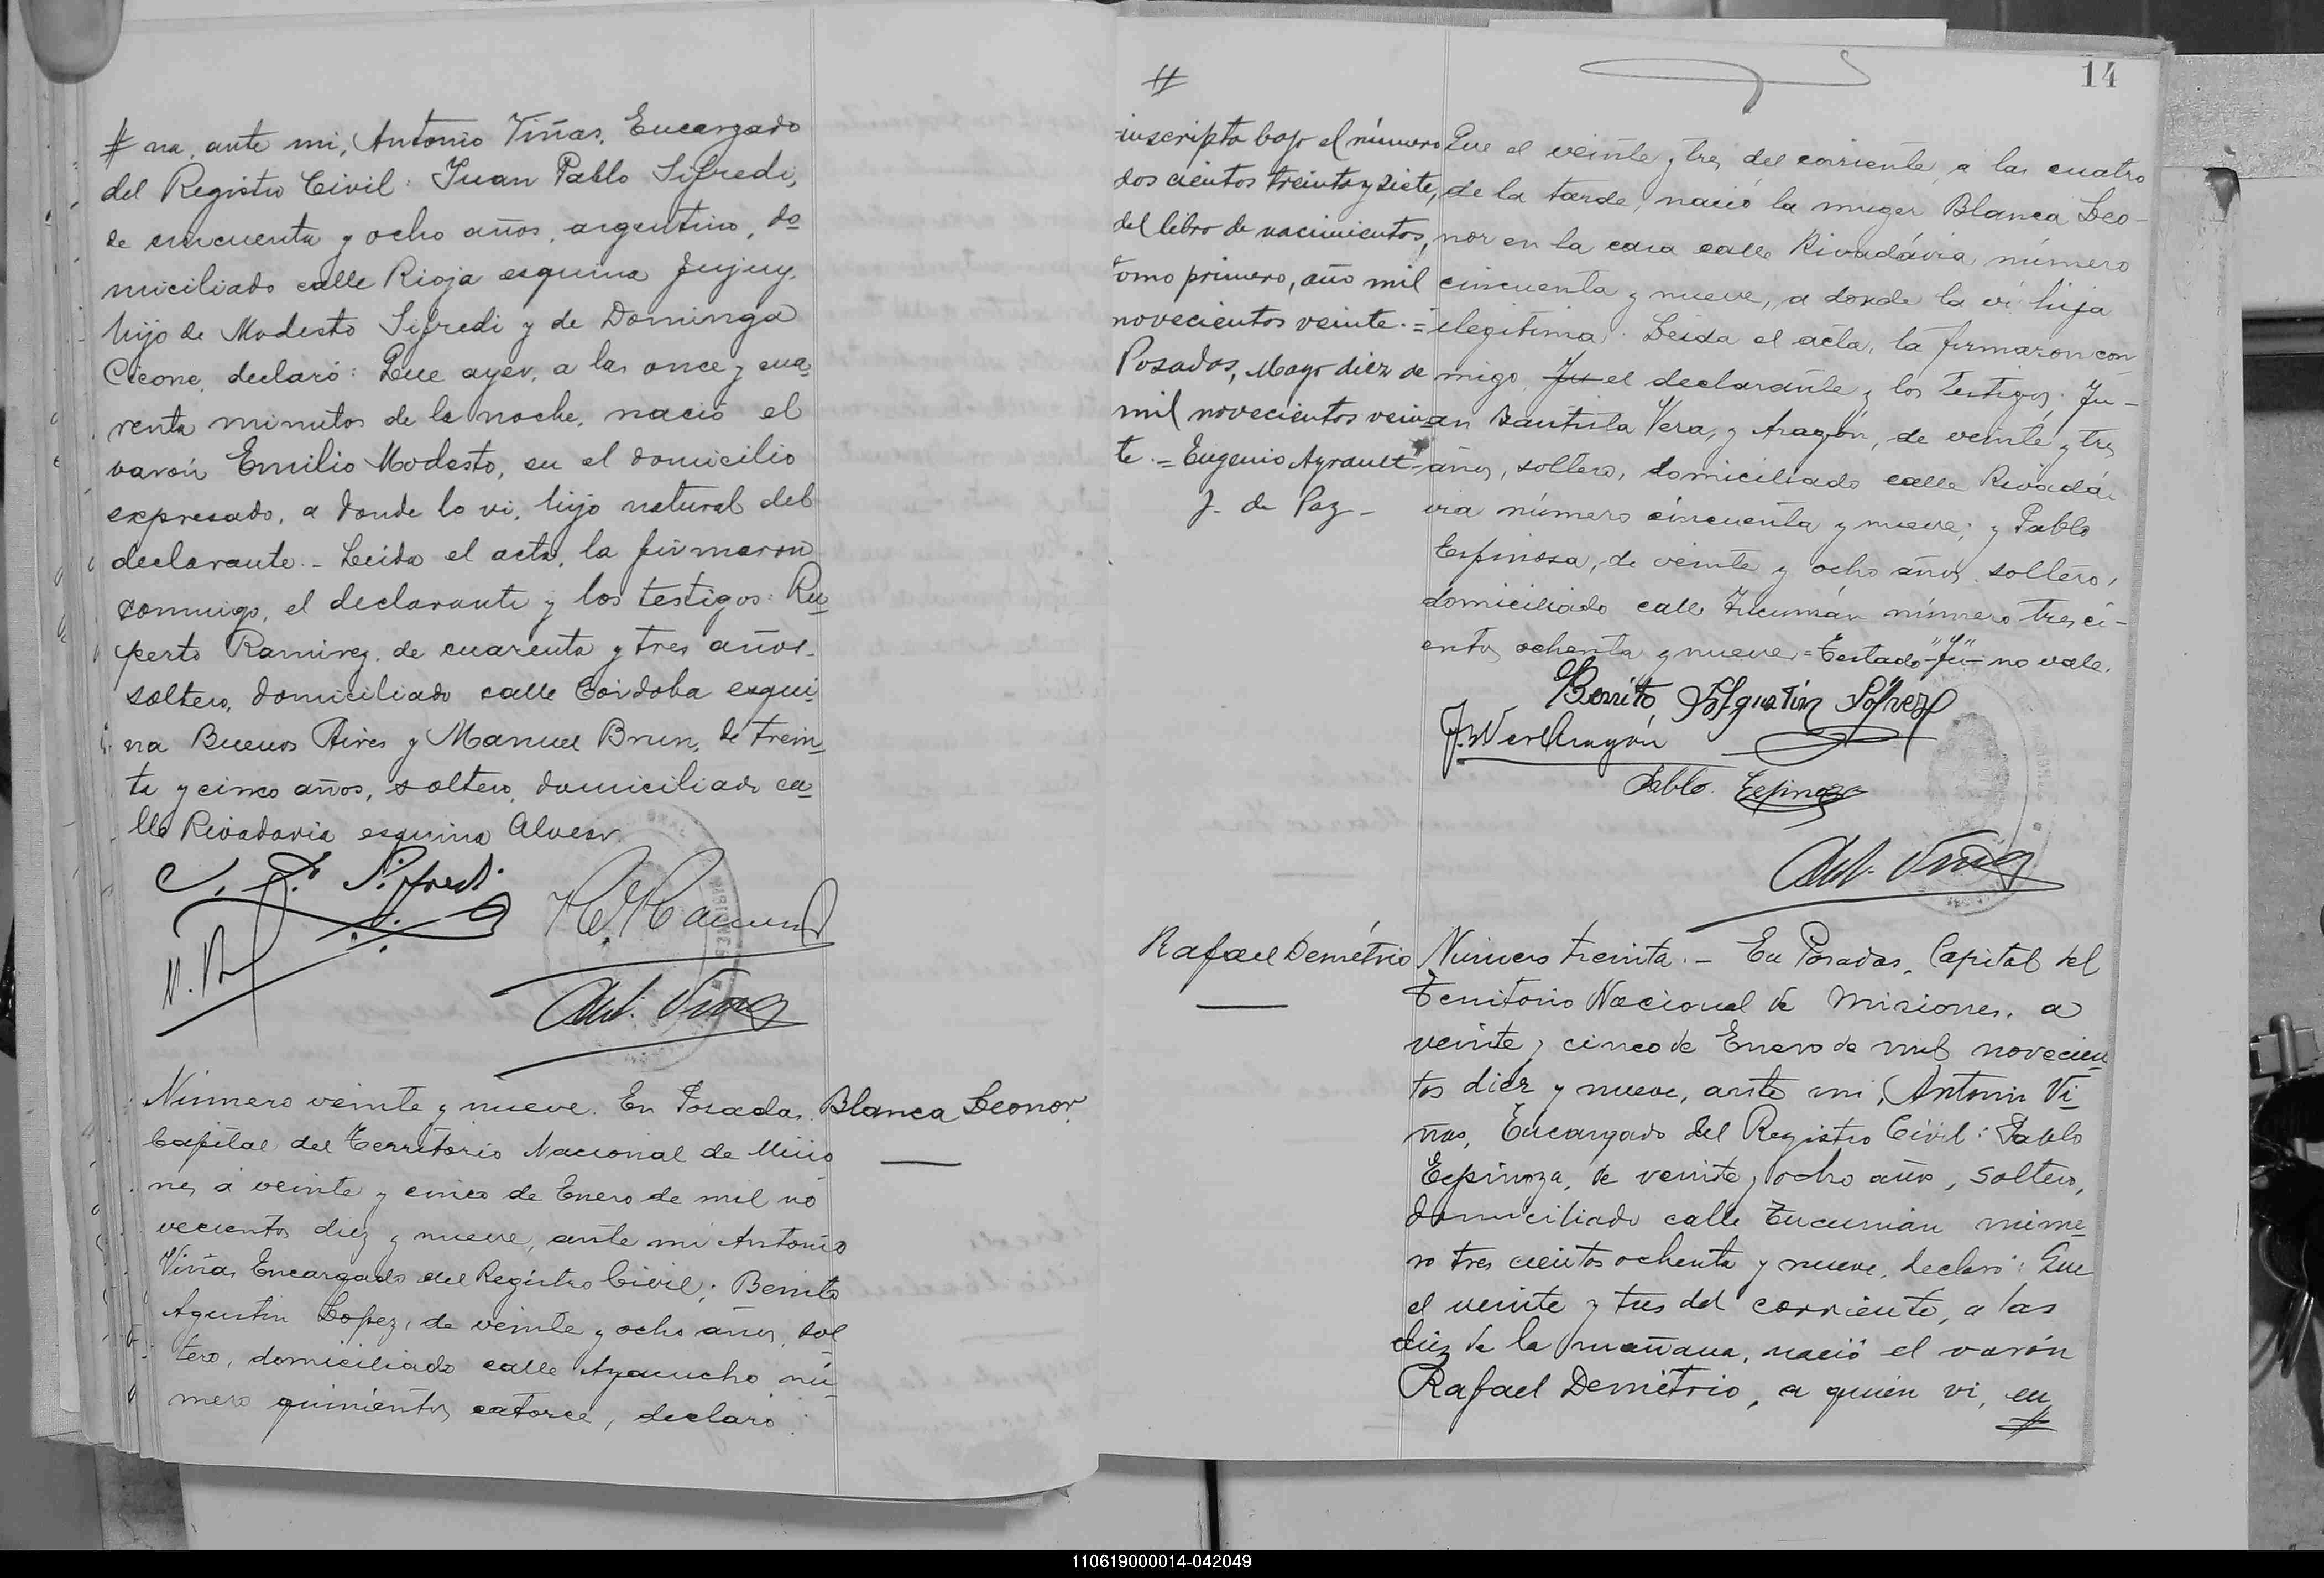 # na, ante mi, Antonio Viñas, Encargado
del Registro Civil: Juan Pablo Sifredi,
de cincuenta y ocho años, argentino, do
miciliado calle Rioja esquina Jujuy,
hijo de Modesto Sifredi y de Dominga
Cicone, declaró: Que ayer, a las once y cua
renta minutos de la noche, nació el
varón Emilio Modesto, en el domicilio
expresado, a donde lo vi, hijo natural del
declarante.- Leida el acta, la firmaron
conmigo, el declarante y los testigos: Ru
perto Ramirez, de cuarenta y tres años,
soltero, domiciliado calle Córdoba esqui
na Buenos Aires y Manuel Brun, de trein
ta y cinco años, soltero, domiciliado ca
lle Rivadavia esquina Alvear.
J. P. Sifredi
R. Ramirez
M. B.
Ant. Viñas
Número veinte y nueve. En Posadas,
Capital del Territorio Nacional de Misio
nes, á veinte y cinco de Enero de mil no
vecientos diez y nueve, ante mi Antonio
Viñas Encargado del Registro Civil; Benito
Agustin Lopez, de veinte y ocho años, sol
tero, domiciliado calle Ayacucho nú
mero quinientos catorce, declaro:
Blanca Leonor.
14
#
inscripta bajo el número
dos cientos treinta y siete,
del libro de nacimientos,
tomo primero, año mil
novecientos veinte.=
Posadas, Mayo diez de
mil novecientos vein
te.= Eugenio Ayrault
J. de Paz-
Que el veinte y tres del corriente, a las cuatro
de la tarde, nació la muger Blanca Leo-
nor en la casa calle Rivadávia número
cincuenta y nueve, a donde la vi hija
ilegitima. Leida el acta, la firmaron con
migo, Ju el declarante y los testigos: Ju-
an Bautista Vera, y Aragón, de veinte y tres
años, soltero, domiciliado calle Rivadá-
via número cincuenta y nueve; y Pablo
Espinosa, de veinte y ocho años, soltero,
domiciliado calle Tucumán número tresci-
entos ochenta y nueve = Testado - "Ju" - no vale.
Benito Agustin López
J. B. Vera Aragón
Pablo Espinoza
Ant. Viñas
Rafael Demétrio
Número treinta.- En Posadas, Capital del
Territorio Nacional de Misiones, a
veinte y cinco de Enero de mil novecien
tos diez y nueve, ante mi, Antonio Vi
ñas, Encargado del Registro Civil: Pablo
Espinoza, de veinte y ocho años, soltero,
domiciliado calle Tucumán núme
ro tres cientos ochenta y nueve, declaró: Que
el veinte y tres del corriente, a las
diez de la mañana, nació el varón
Rafael Demétrio, a quién vi, en
#
110619000014-042049